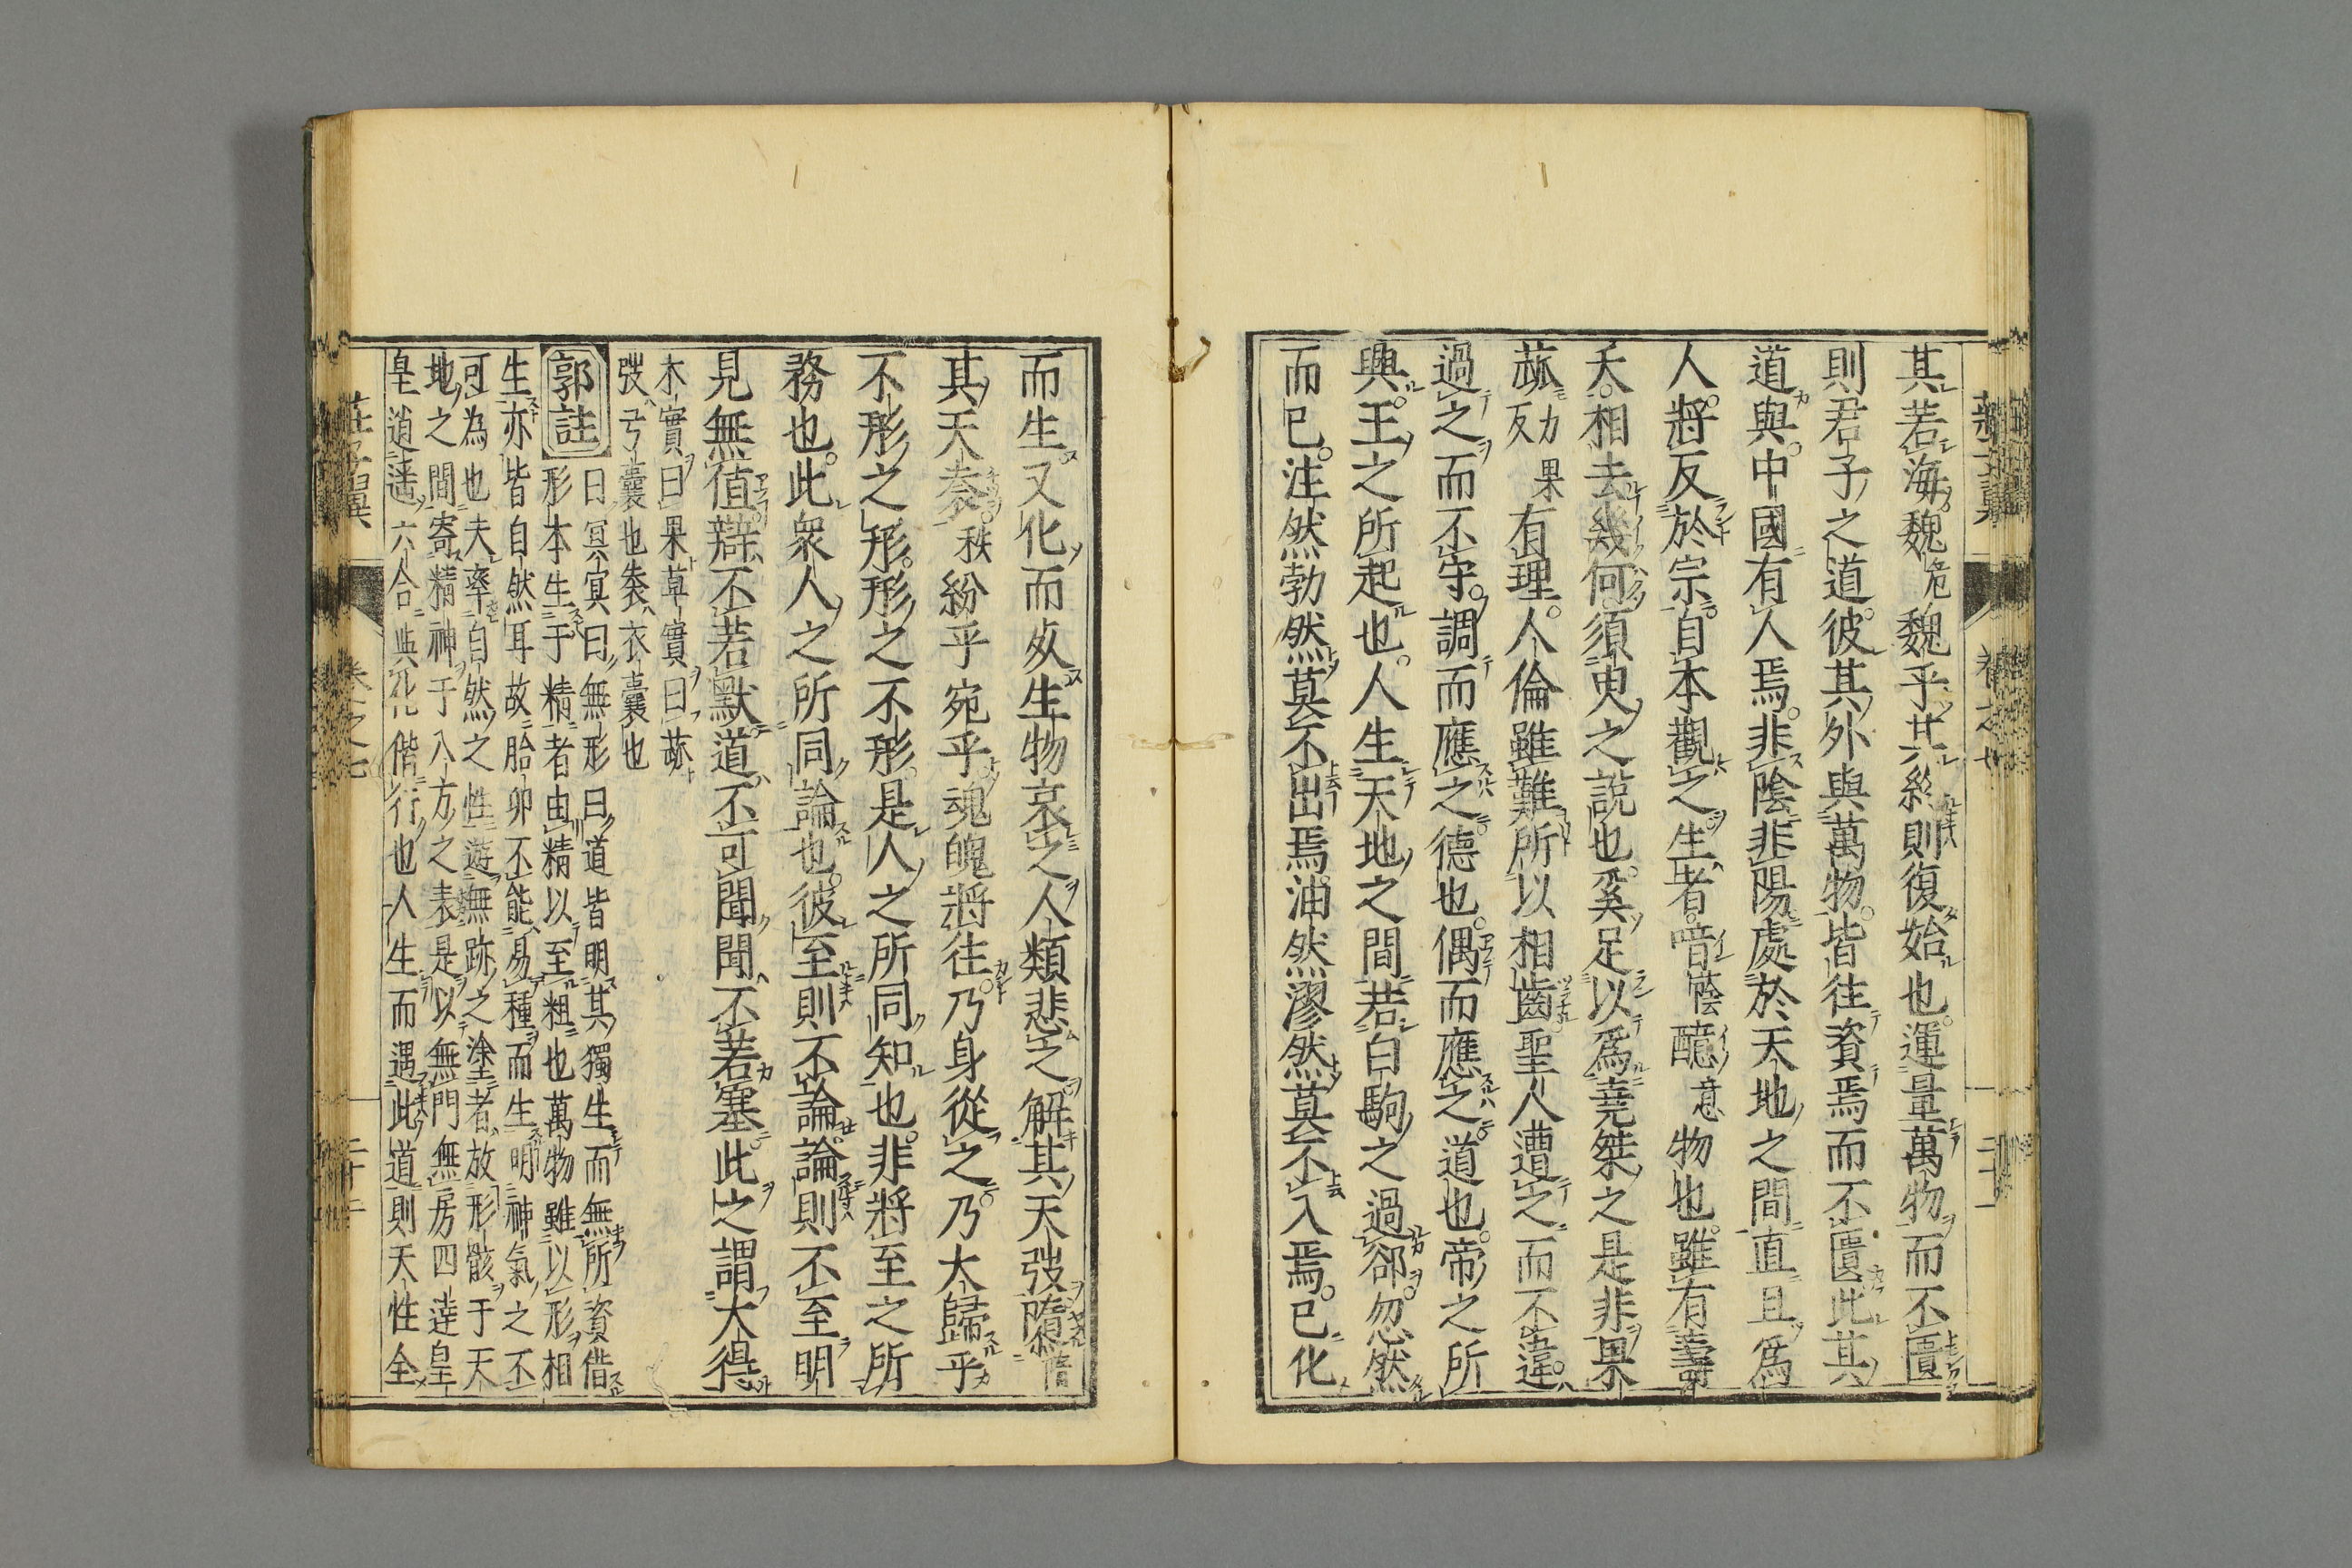 其若海魏危魏乎其終則復始也運量萬物而不匱
則君子之道彼其外與萬物皆往資焉而不匱此其
道與中國有人焉非陰非陽處於天地之間直且爲
人將反於宗自本觀之生者喑蔭醷意物也雖有壽
夭相去幾何須臾之說也奚足以爲堯桀之是非果
蓏力果反有理人倫雖難所以相齒聖人遭之而不違
過之而不守調而應之德也偶而應之道也帝之所
興王之所起也人生天地之間若白駒之過郤忽然
而已注然勃然莫不出焉油然漻然莫不入焉已化
而生又化而死生物哀之人類悲之解其天弢隳
其天袠秩紛乎宛乎魂魄將往乃身從之乃大歸乎
不形之形形之不形是人之所同知也非將至之所
務也此衆人之所同論也彼至則不論論則不至明
見無值辯不若默道不可聞聞不若塞此之謂大得
木實曰果草實曰蓏
弢弓囊也袠衣囊也
郭註
曰冥冥曰無形曰道皆明其獨生而無所資借
形本生于精者由精以至粗也萬物雖以形相
生亦皆自然耳故胎卵不能易種而生明神氣之不
可為也夫率自然之性遊無跡之塗者放形骸于天
地之間寄精神于八方之表是以無門無房四逹皇
皇逍遥六合與化偕行也人生而遇此道則天性全
莊子翼
卷之七
二十二